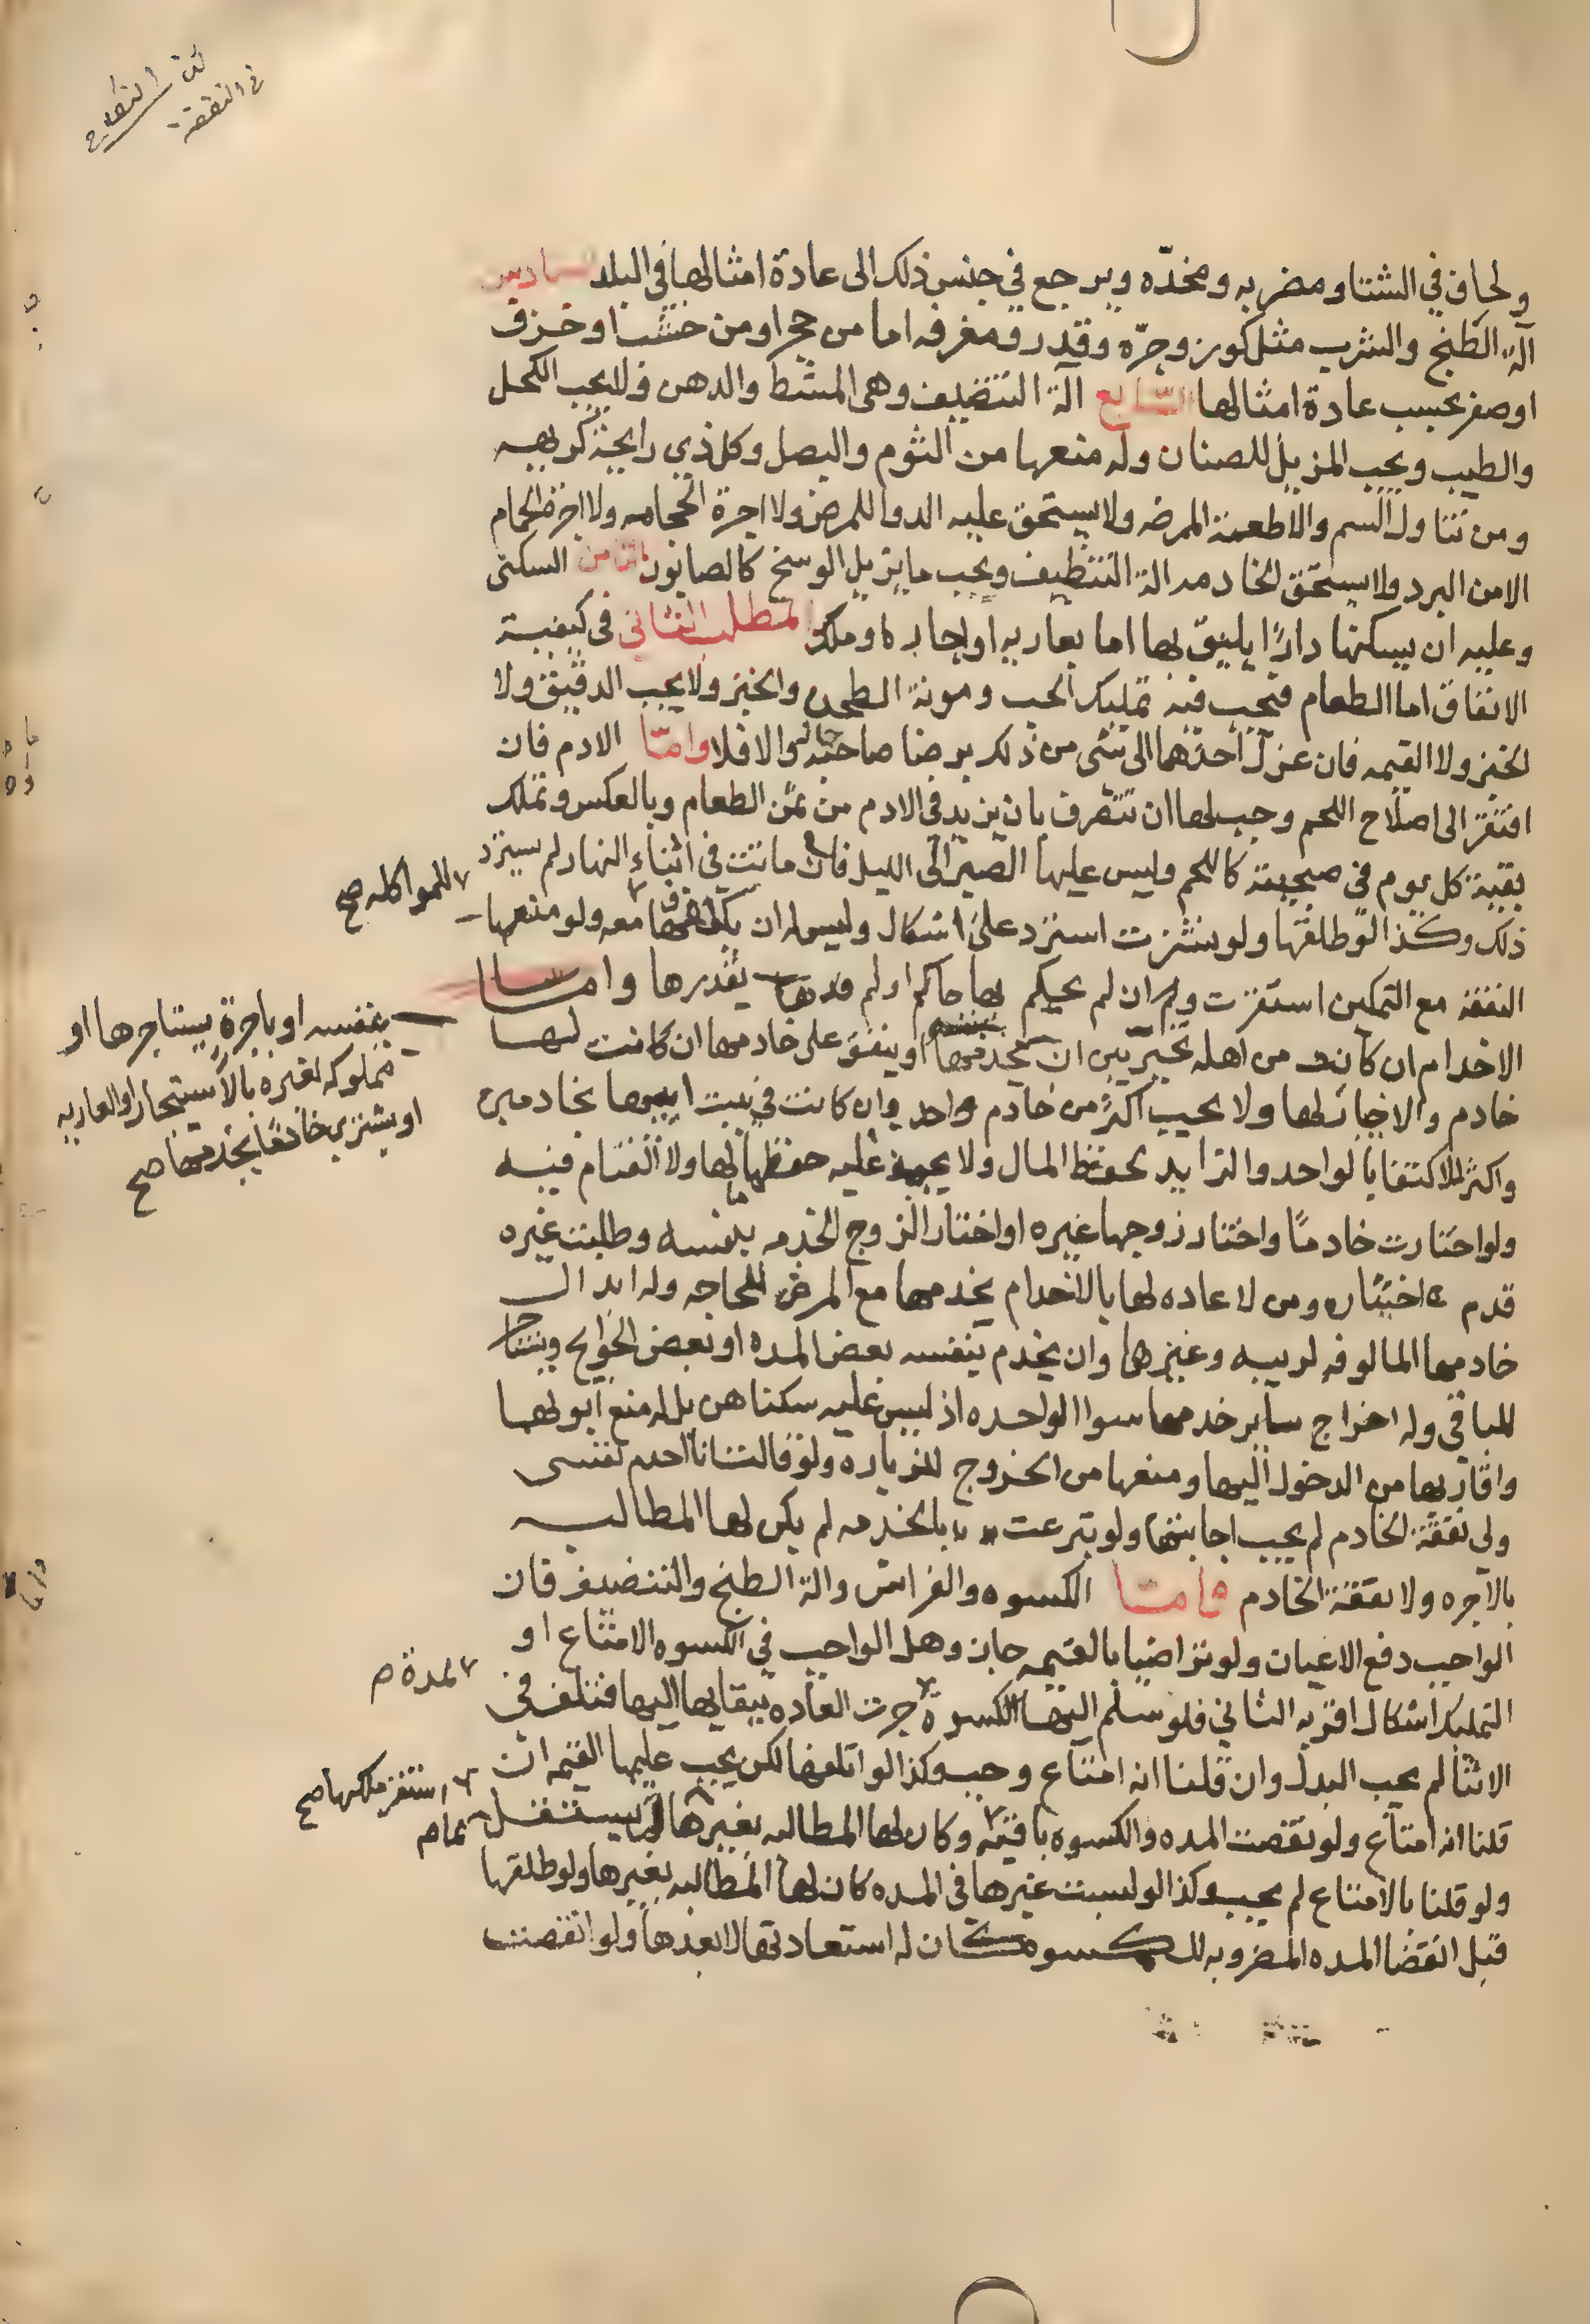 في النفقة
ولحاف في الشتا ومضربه ومخدّه ويرجع في جنس ذلك الى عادة امثالها في البلد السادس
آلة الطبخ والشرب مثل كوز وجرّه وقدر ومغرفه اما من حجر او من خشب او خزف
او صفر بحسب عادة امثالها السّابع آلة التنضيف وهى المشط والدهن ولا يجب الكحل
والطيب ويجب المزيل للصنان وله منعها من الثوم والبصل وكل ذي رايحة كريهه
ومن تناول السم والاطعمة الممرضه ولا يستحق عليه الدوا للمرض ولا اجرة الحجامه ولا اجرة الحمام
الا من البرد ولا يستحق الخادمه الة التنظيف ويجب ما يزيل الوسخ كالصابون الثامن السكنى
وعليه ان يسكنها دارًا يليق بها اما بعاريه او اجاره او ملك المطلب الثاني في كيفية
الانفاق اما الطعام فيجب فيه تمليك الحب ومونة الطحن والخبز ولا يجب الدقيق ولا
الخبز ولا القيمه فان عزل احدهما الى شى من ذلك برضا صاحبه جاز والا فلا وامّا الادم فان
افتقر الى اصلاح اللحم وجب لها ان تتصرف بان يزيد في الادم من ثمن الطعام وبالعكس وتملك
بقية كل يوم في صبيحته كاللحم وليس عليها الصبر الى الليل فان ماتت في اثناء النهار لم يسترد
ذلك وكذا لو طلقها ولو نشزت استرد على اشكال وليس له ان يكلفها معه ولو منعها
للمواكله صح
النفقه مع التمكين استقرت وان لم يحكم بها حاكم او لم يقدرها وامـا
الاخدام ان كانت من اهله تخير بين ان يخدمها او ينفق على خادمها ان كانت لهـا
بنفسه او باجرة يستاجرها او
مملوكه لغيره بالاستيجار او العاريه
او يشترى خادمًا يخدمها صح
خادم والا اخا لها ولا يجب اكثر من خادم واحد وان كانت في بيت ابيها بخادمين
واكثر للاكتفا بالواحد والزايد لحفظ المال ولا يجب عليه حفظ مالها ولا القيام فيـه
ولو اختارت خادمًا واختار زوجها غيره او اختار الزوج الخدمه بنفسه وطلبت غيره
قدم اختياره ومن لا عاده لها بالاخدام يخدمها مع المرض للحاجه وله ابدال
خادمها المالوفه لريبه وغيرها وان يخدم بنفسه بعض المده او بعض الحوايج ويستاجر
للباقي وله اخراج ساير خدمها سوا الواحده اذ ليس عليه سكناهن بل له منع ابويها
واقاربها من الدخول اليها ومنعها من الخروج للزياره ولو قالت انا اخدم نفسى
ولى نفقة الخادم لم يجب اجابتها ولو تبرعت بالخدمه لم يكن لها المطالبـه
بالاجره ولا نفقة الخادم وامـا الكسوه والفراش والة الطبخ والتنضيف فان
الواجب دفع الاعيان ولو تراضيا بالقيمه جاز وهل الواجب في الكسوه الامتاع او
لمدة صح
التمليك اشكال اقربه الثاني فلو سلم اليها الكسوة جرت العاده ببقايها اليها فتلف في
الاثنا لم يجب البدل وان قلنا انه امتاع وجب وكذا لو اتلفها لكن يجب عليها القيمه ان
قلنا انه امتاع ولو نقضت المده والكسوه باقيه وكان لها المطالبه بغيرها
استقر ملكها صح
ولو قلنا بالامتاع لم يجب وكذا لو لبست غيرها في المده كان لها المطالبه بغيرها ولو طلقها
قبل انقضا المده المضروبه للكسوه كان له استعادتها لا بعدها ولو انقضت